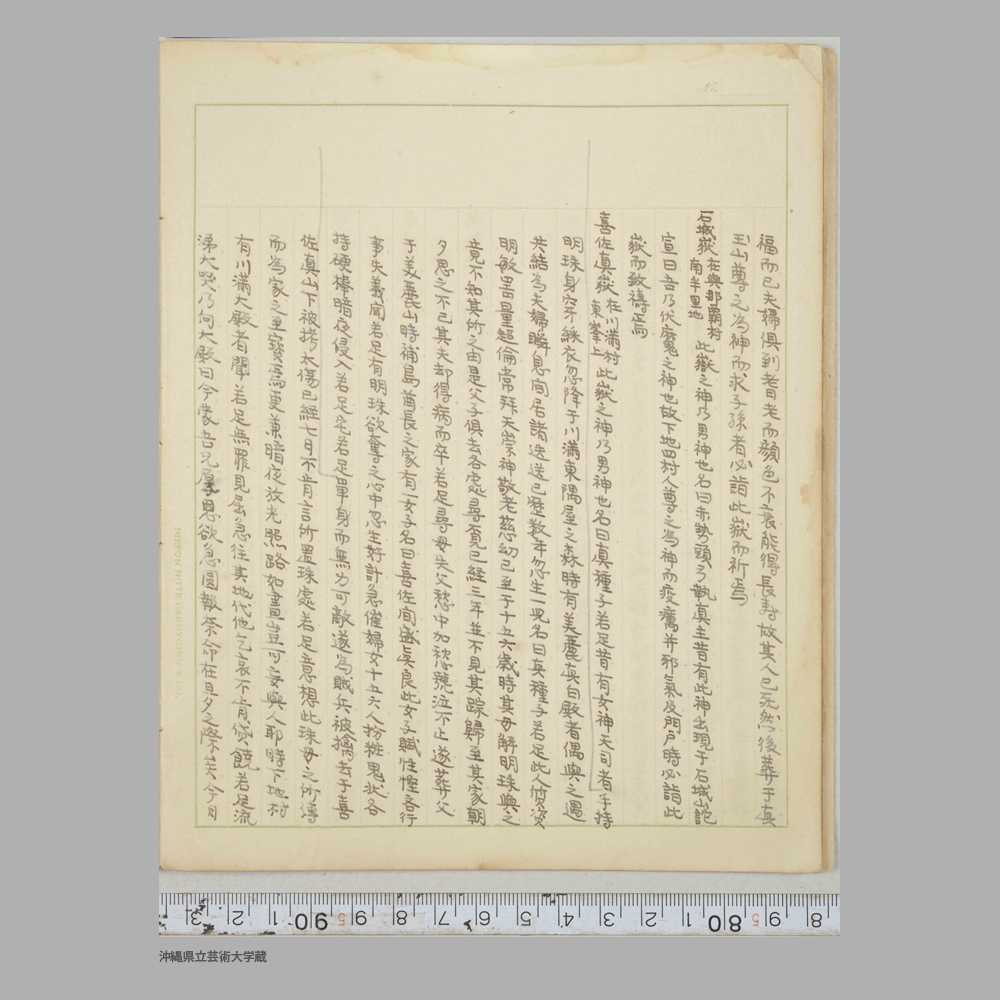 No.
福而已夫婦俱到耆老而顔色不衰能得長壽故其人已死然後葬于真
玉山尊之為神而求子孫者必詣此嶽而祈焉
石城嶽 在與那覇村南半里地 此嶽之神乃男神也名曰赤勢頭乃執真主昔有此神出現于石城山詫
宣曰吾乃伏魔之神也故下地四村人尊之為神而疫癘并邪氣及門戸時必詣此
嶽而致禱焉
喜佐真嶽 在川満村東峯上 此嶽之神乃男神也名曰真種子若足昔有女神天司者手持
明珠身穿綵衣忽降于川満東隅屋之森時有美麗真白殿者偶與之遇
共結為夫婦瞬息間居諸迭送已歴数年忽生一児名曰真種子若足此人質資
明敏器量超倫常拜天崇神敬老慈幼已至于十五六歳時其母解明珠與之
竟不知其所之由是父子俱去各處尋覓已経三年並不見其踪歸至其家朝
夕思之不已其夫却得病而卒若足尋母失父愁中加愁號泣不止遂葬父
于美麗山時補島酋長之家有一女子名曰喜佐間盛真良此女子賦性慳吝行
事失義聞若足有明珠欲奪之心中忽生奸計急催婦女十五六人扮粧鬼状各
持硬棒暗夜侵入若足宅若足單身而無力可敵遂為賊兵被擒去于喜
佐真山下被拷太傷已經七日不肯言所置珠處若足意想此珠母之所傳
而為家之至寳焉更兼暗夜放光照路如晝豈可妄與人耶時下地村
有川満大殿者聞若足無罪見害急往其地代他乞哀不肯貸饒若足流
涕大哭乃向大殿曰今蒙吾兄厚恩欲急圖報奈命在旦夕之際矣今月
NIPPON NOTE GAKUYOHIN & CO.
3 2 1 90 9 8 7 6 5 4 3 2 1 80 9 8
沖縄県立芸術大学蔵